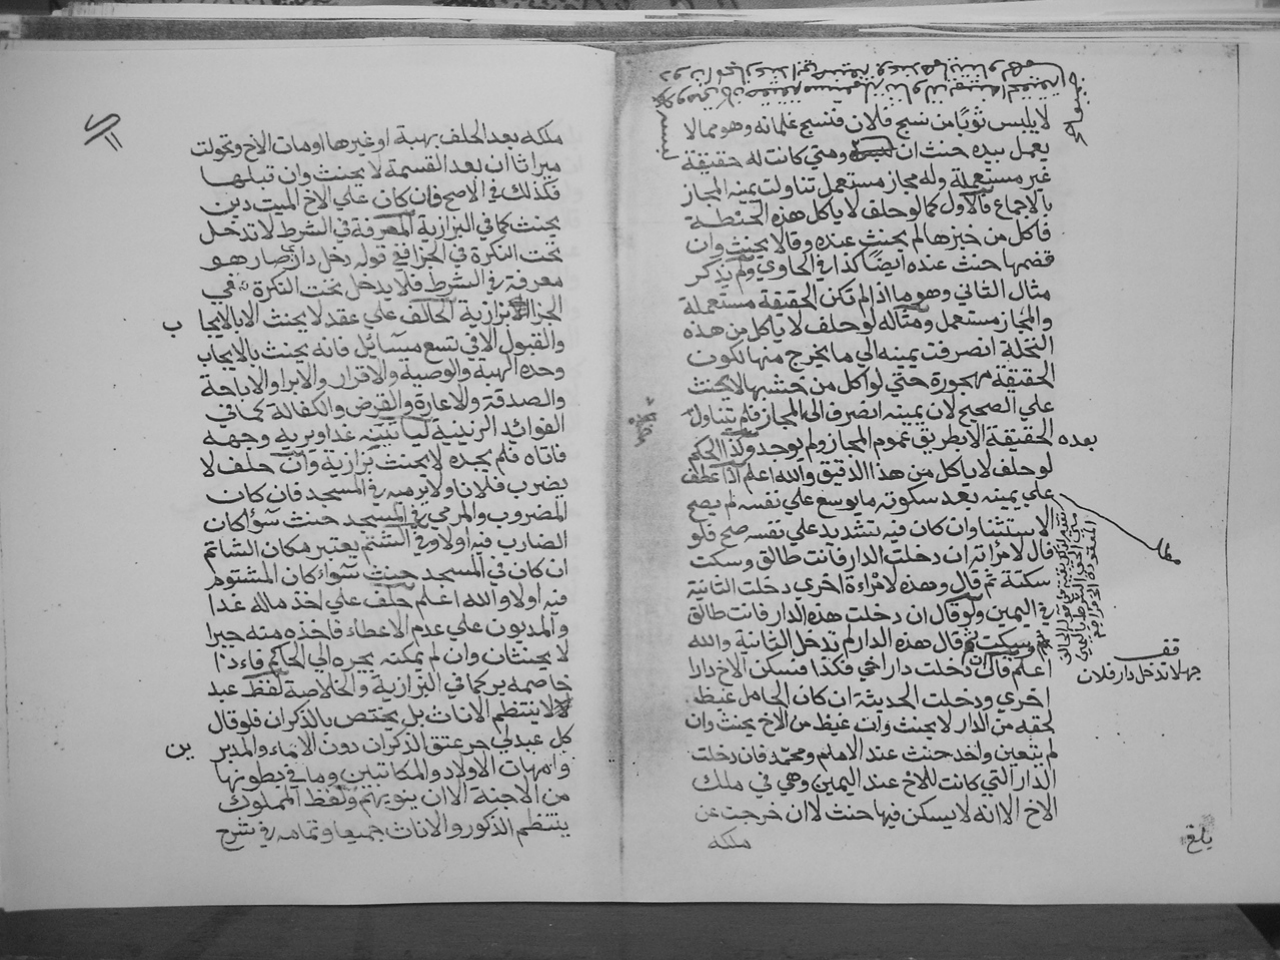 لا يلبس ثوبًا من نسج فلان فنسج غلمانه وهو ممالا
يعمل بيده حنث ان ومتي كانت له حقيقة
غير مستعملة وله مجاز مستعمل تناولت يمينه المجاز
بالاجماع فالاول كما لو حلف لا ياكل هذه الحنطة
فاكل من خبزها لم يحنث عنده وقالا يحنث وان
قضمها حنث عنده أيضًا كذا في الحاوي ولم يذكر
مثال الثاني وهو ما اذا لم تكن الحقيقة مستعملة
والمجاز مستعمل ومثاله لو حلف لا ياكل من هذه
النخلة انصرفت يمينه الي ما يخرج منها لكون
الحقيقة مهجورة حتي لو اكل من خشبها لا يحنث
علي الصحيح لان يمينه انصرف الى المجاز فلم تتناول
الحقيقة الا بطريق عموم المجاز ولم يوجد وكذا الحكم
بعده
لو حلف لا ياكل من هذا الدقيق والله اعلم اذا عطف
علي يمينه بعد سكوته ما يوسع علي نفسه لم يصح
الاستثنا وان كان فيه تشديد علي نفسه صح فلو
قال لامراته ان دخلت الدار فانت طالق وسكت
سكتة ثم قال وهذه لامراءة اخري دخلت الثانية
في اليمين ولو قال ان دخلت هذه الدار فانت طالق
وسكت ثم قال هذه الدار لم تدخل الثانية والله
اعلم قال دخلت دار اخي فكذا فسكن الاخ دارا
اخري ودخلت الحديثة ان كان الحامل غيظ
لحقه من الدار لا يحنث وان غيظ من الاخ يحنث وان
لم يتعين واحد حنث عند الامام ومحمد فان دخلت
الدار التي كانت للاخ عند اليمين وهي في ملك
الاخ الا انه لا يسكن فيها حنث لا ان خرجت عن
ملكه
قف
لا تدخل دار فلان
بلغ
ملكه بعد الحلف بهبة او غيرها او مات الاخ وتحولت
ميراثا ان بعد القسمة لا يحنث وان قبلها
فكذلك في الاصح فان كان علي الاخ الميت دين
يحنث كما في البزازية المعرفة في الشرط لا تدخل
تحت النكرة في الجزا ففي قوله دخل داري صار هو
معرفة في الشرط فلا يدخل تحت النكرة في
الجزا بزازية الحالف علي عقد لا يحنث الا بالايجا
ب
والقبول الا في تسع مسائل فانه يحنث بالايجاب
وحده الهبة والوصية والاقرار والابرا والاباحة
والصدقة والاعارة والقرض والكفالة كما في
الفوائد الزينية لياتينه غدا ويريه وجهه
فاتاه فلم يجده لا يحنث بزازية وان حلف لا
يضرب فلانا ولا يرميه في المسجد فان كان
المضروب والمرمي في المسجد حنث سواء كان
الضارب فيه او لا وفي الشتم يعتبر مكان الشاتم
ان كان في المسجد حنث سواء كان المشتوم
فيه او لا والله اعلم حلف علي اخذ ماله غدا
والمديون علي عدم الاعطاء فاخذه منه جبرا
لا يحنثان وان لم يمكنه يجره الي الحاكم فاءذا
خاصمه بر كما في البزازية والخلاصة لفظ عبد
لا ينتظم الاناث بل يختص بالذكران فلو قال
كل عبد لي حر عتق الذكران دون الاماء والمدبر
ين
وامهات الاولاد والمكاتبين وما في بطونها
من الاجنة الا ان ينويهم ولفظ المملوك
ينتظم الذكور والاناث جميعا وتمامه في شرح